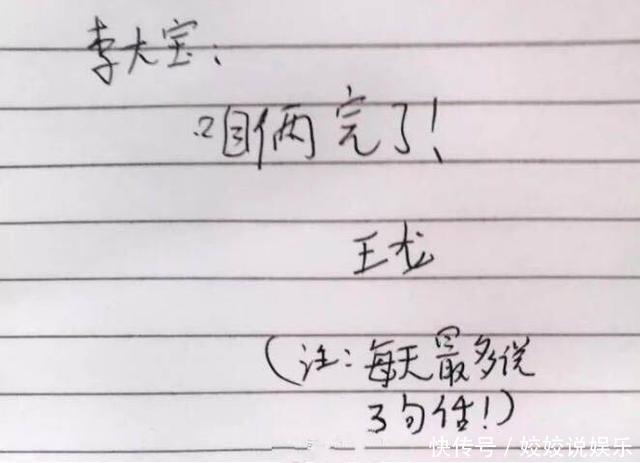 李大宝:
咱俩完了!
王龙
(注:每天最多说
3句话!)
快传号/姣姣说娱乐